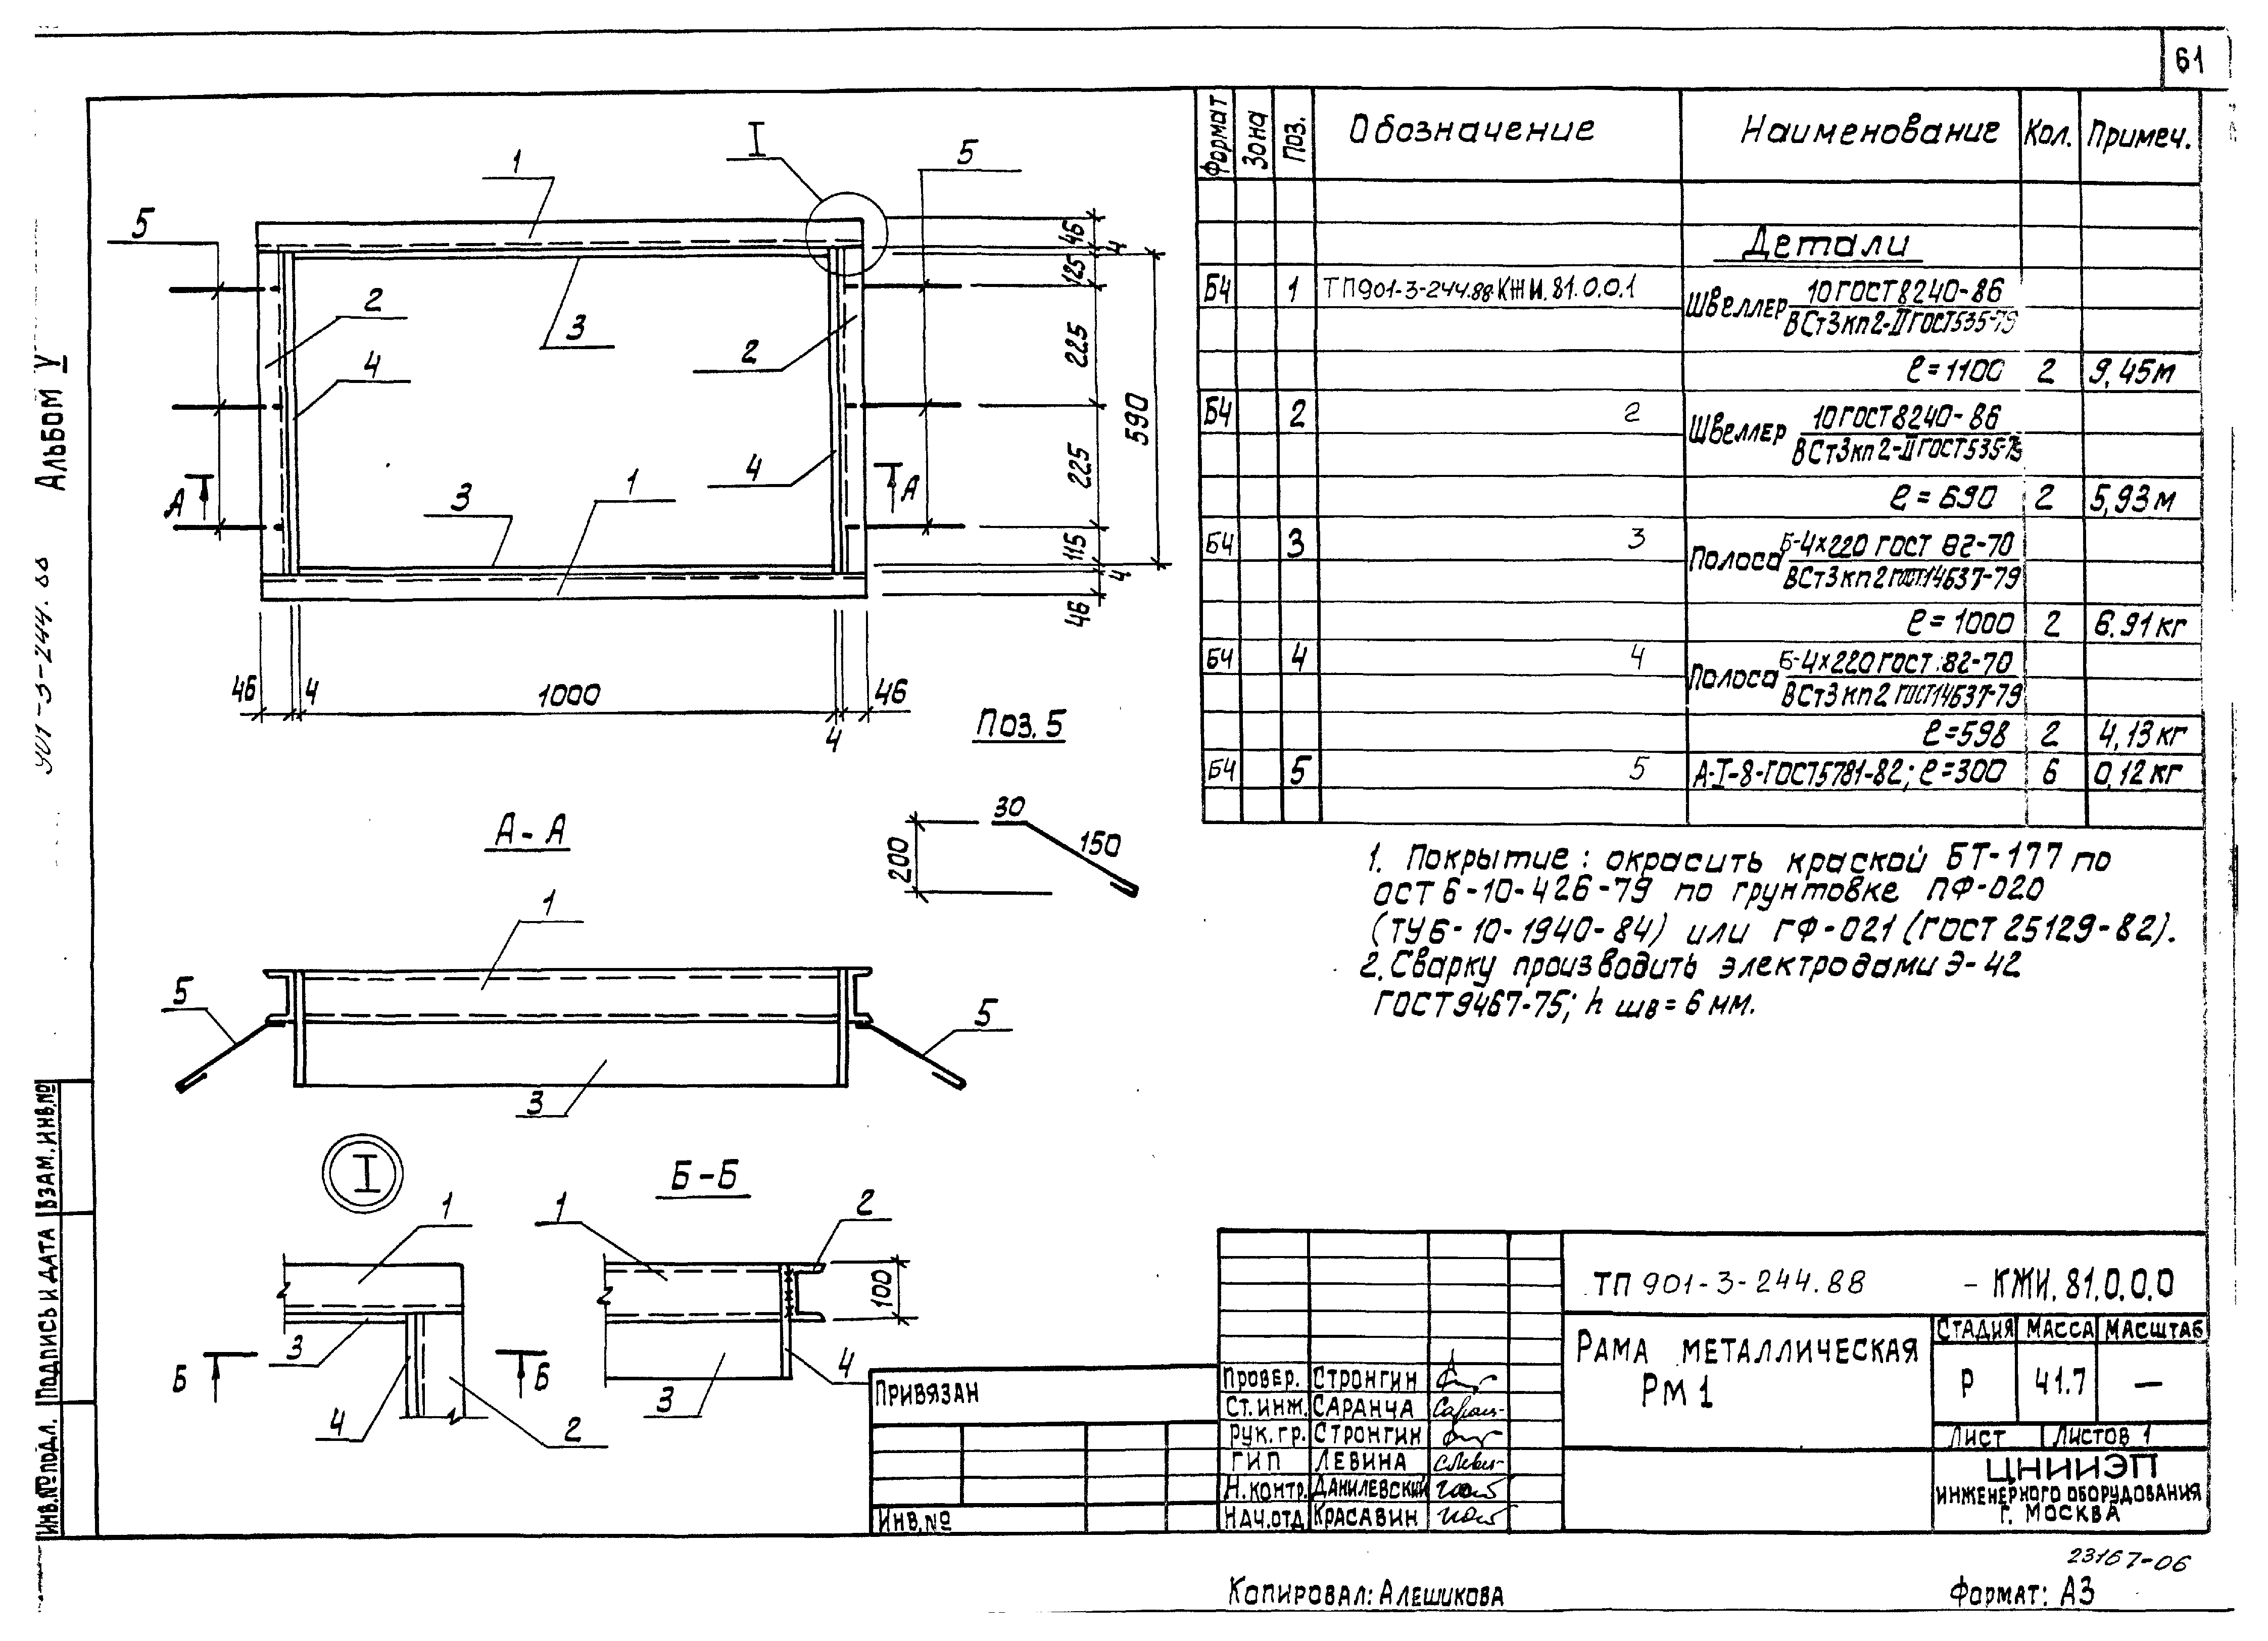 61
Формат
Зона
Поз.
Обозначение
Наименование
Кол.
Примеч.
Детали
Б4 1 ТП901-3-244.88 КЖИ.81.0.0.1 Швеллер 10 ГОСТ 8240-86
ВСт3кп2-II ГОСТ535-79
ℓ=1100 2 9,45м
Б4 2 2 Швеллер 10 ГОСТ 8240-86
ВСт3кп2-II ГОСТ535-79
ℓ=690 2 5,93м
Б4 3 3 Полоса Б-4х220 ГОСТ 82-70
ВСт3кп2 ГОСТ14637-79
ℓ=1000 2 6.91кг
Б4 4 4 Полоса Б-4х220 ГОСТ 82-70
ВСт3кп2 ГОСТ14637-79
ℓ=598 2 4,13кг
Б4 5 5 А-I-8-ГОСТ5781-82; ℓ=300 6 0,12кг
1. Покрытие: окрасить краской БТ-177 по
ОСТ 6-10-426-79 по грунтовке ПФ-020
(ТУ6-10-1940-84) или ГФ-021 (ГОСТ 25129-82).
2. Сварку производить электродами Э-42
ГОСТ 9467-75; h шв = 6 мм.
I
1
5
5
2
4
3
2
4
А
А
3
1
46
4
125
225
225
115
4
46
590
46
4
1000
4
46
Поз. 5
30
150
200
А-А
1
5
5
3
I
1
3
Б
Б
4
2
Б-Б
1
2
100
4
3
Альбом V
901-3-244.88
Взам. инв. №
Подпись и дата
Инв. № подл.
Привязан
Инв. №
Провер. Стронгин
Ст. инж. Саранча
Рук. гр. Стронгин
ГИП Левина
Н. контр. Данилевский
Нач. отд Красавин
ТП 901-3-244.88 - КЖИ. 81.0.0.0
Рама металлическая
РМ 1
Стадия Масса Масштаб
Р 41.7 —
Лист Листов 1
ЦНИИЭП
инженерного оборудования
г. Москва
23167-06
Копировал: Алешикова
Формат: А3